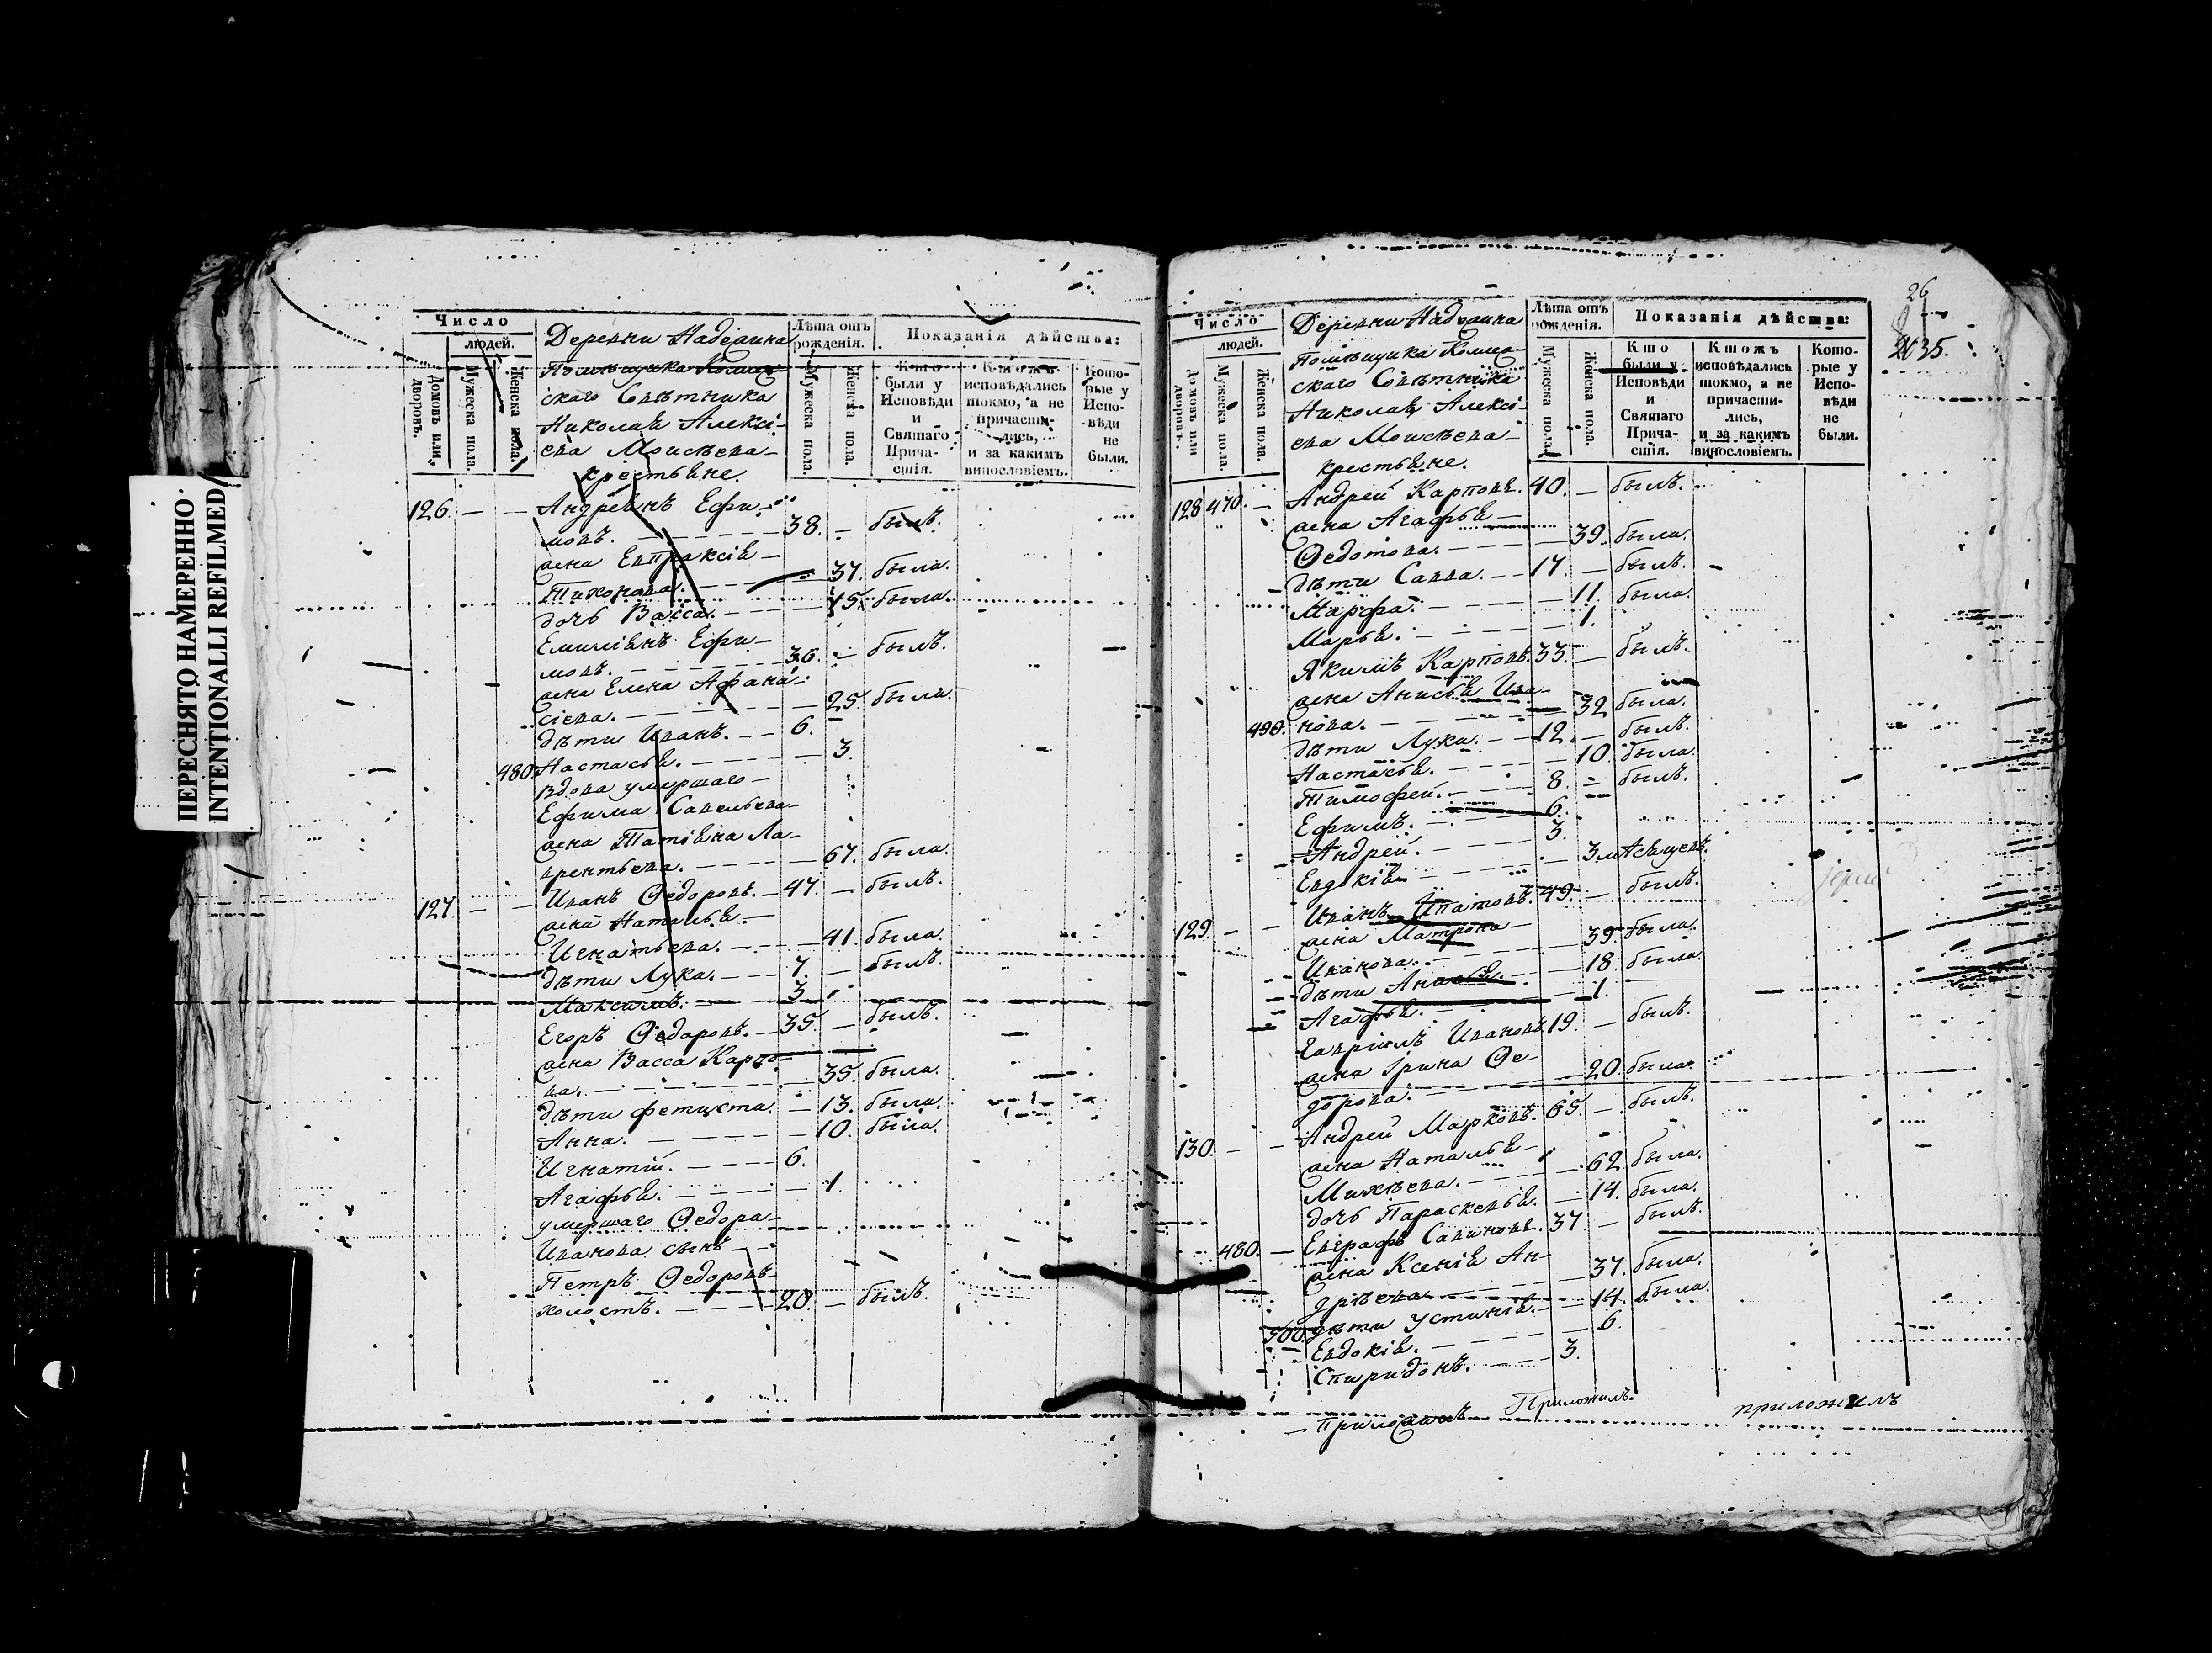 ПЕРЕСНЯТО НАМЕРЕННО
INTENTIONALLI REFILMED
Число
людей.
Домовъ или дворовъ.
Мужеска пола.
Женска пола.
Деревни Надеждина
Помѣщика Коллеж-
скаго Совѣтника
Николая Алексѣ-
ева Моисѣева
крестьяне.
Лѣта отъ рожденія.
Мужеска пола.
Женска пола.
Показанія дѣйства:
Кто были у Исповѣди и Святаго Причастія.
Ктожъ исповѣдались токмо, а не причастились, и за какимъ винословіемъ.
Которые у Исповѣди не были.
126. — — Андреянъ Ефи-
мовъ. 38. — былъ.
жена Евпраксія
Тихонова. — 37. была.
дочь Васса. — 15. была.
Емилiянъ Ефи-
мовъ. 36. — былъ.
жена Елена Афана-
сіева. — 25. была.
дѣти Иванъ. 6.
480. Настасья. — 3.
вдова умершаго
Ефима Савельева
жена Татіяна Ла-
врентьева. — 67. была.
127 — — Иванъ Ѳедоровъ. 47. — былъ.
жена Наталья
Игнатьева. — 41. была.
дѣти Лука. 7. — былъ.
Максимъ. 3
Егоръ Ѳедоровъ. 35. — былъ.
жена Васса Карпо-
ва. — 35. была.
дѣти Фетиста. — 13. была.
Анна. — 10. была.
Игнатій. 6.
Агафья. — 1.
умершаго Ѳедора
Иванова сынъ
Петръ Ѳедоровъ
холостъ. 20. — былъ.
26
2035.
Число
людей.
Домовъ или дворовъ.
Мужеска пола.
Женска пола.
Деревни Надеждина
Помѣщика Коллеж-
скаго Совѣтника
Николая Алексѣ-
ева Моисѣева
крестьяне.
Лѣта отъ рожденія.
Мужеска пола.
Женска пола.
Показанія дѣйства:
Кто были у Исповѣди и Святаго Причастія.
Ктожъ исповѣдались токмо, а не причастились, и за какимъ винословіемъ.
Которые у Исповѣди не были.
128 470. — Андрей Карповъ. 40. — былъ.
жена Агафья
Ѳедотова. — 39. была.
дѣти Савва. 17. — былъ.
Марфа. — 11. была
Марья. — 1.
Якимъ Карповъ. 33. — былъ.
жена Анисья Ива-
490. нова. — 32 была.
дѣти Лука. 12. — былъ.
Настасья. — 10. была.
Тимофей. 8. — былъ.
Ефимъ. 6.
Андрей. 3.
Евдокія — 3. мѣсяцевъ.
129. — — Иванъ Ипатовъ. 49. — былъ.
жена Матрона
Иванова. — 39. была.
дѣти Анисья. — 18. была
Агафья. — 1.
Гавріилъ Ивановъ 19. — былъ.
жена Ірина Ѳе-
дорова. — 20. была.
130. — — Андрей Марковъ. 65. — былъ.
жена Наталья
Михѣева. — 62. была.
дочь Параскевья. — 14. была.
480. — Евграфъ Савиновъ. 37. — былъ.
жена Ксенія Ан-
дрѣева. — 37. была.
500. дѣти Устинія. — 14. была.
Евдокія. — 6.
Спиридонъ. 3.
Приложилъ Приложилъ. приложилъ